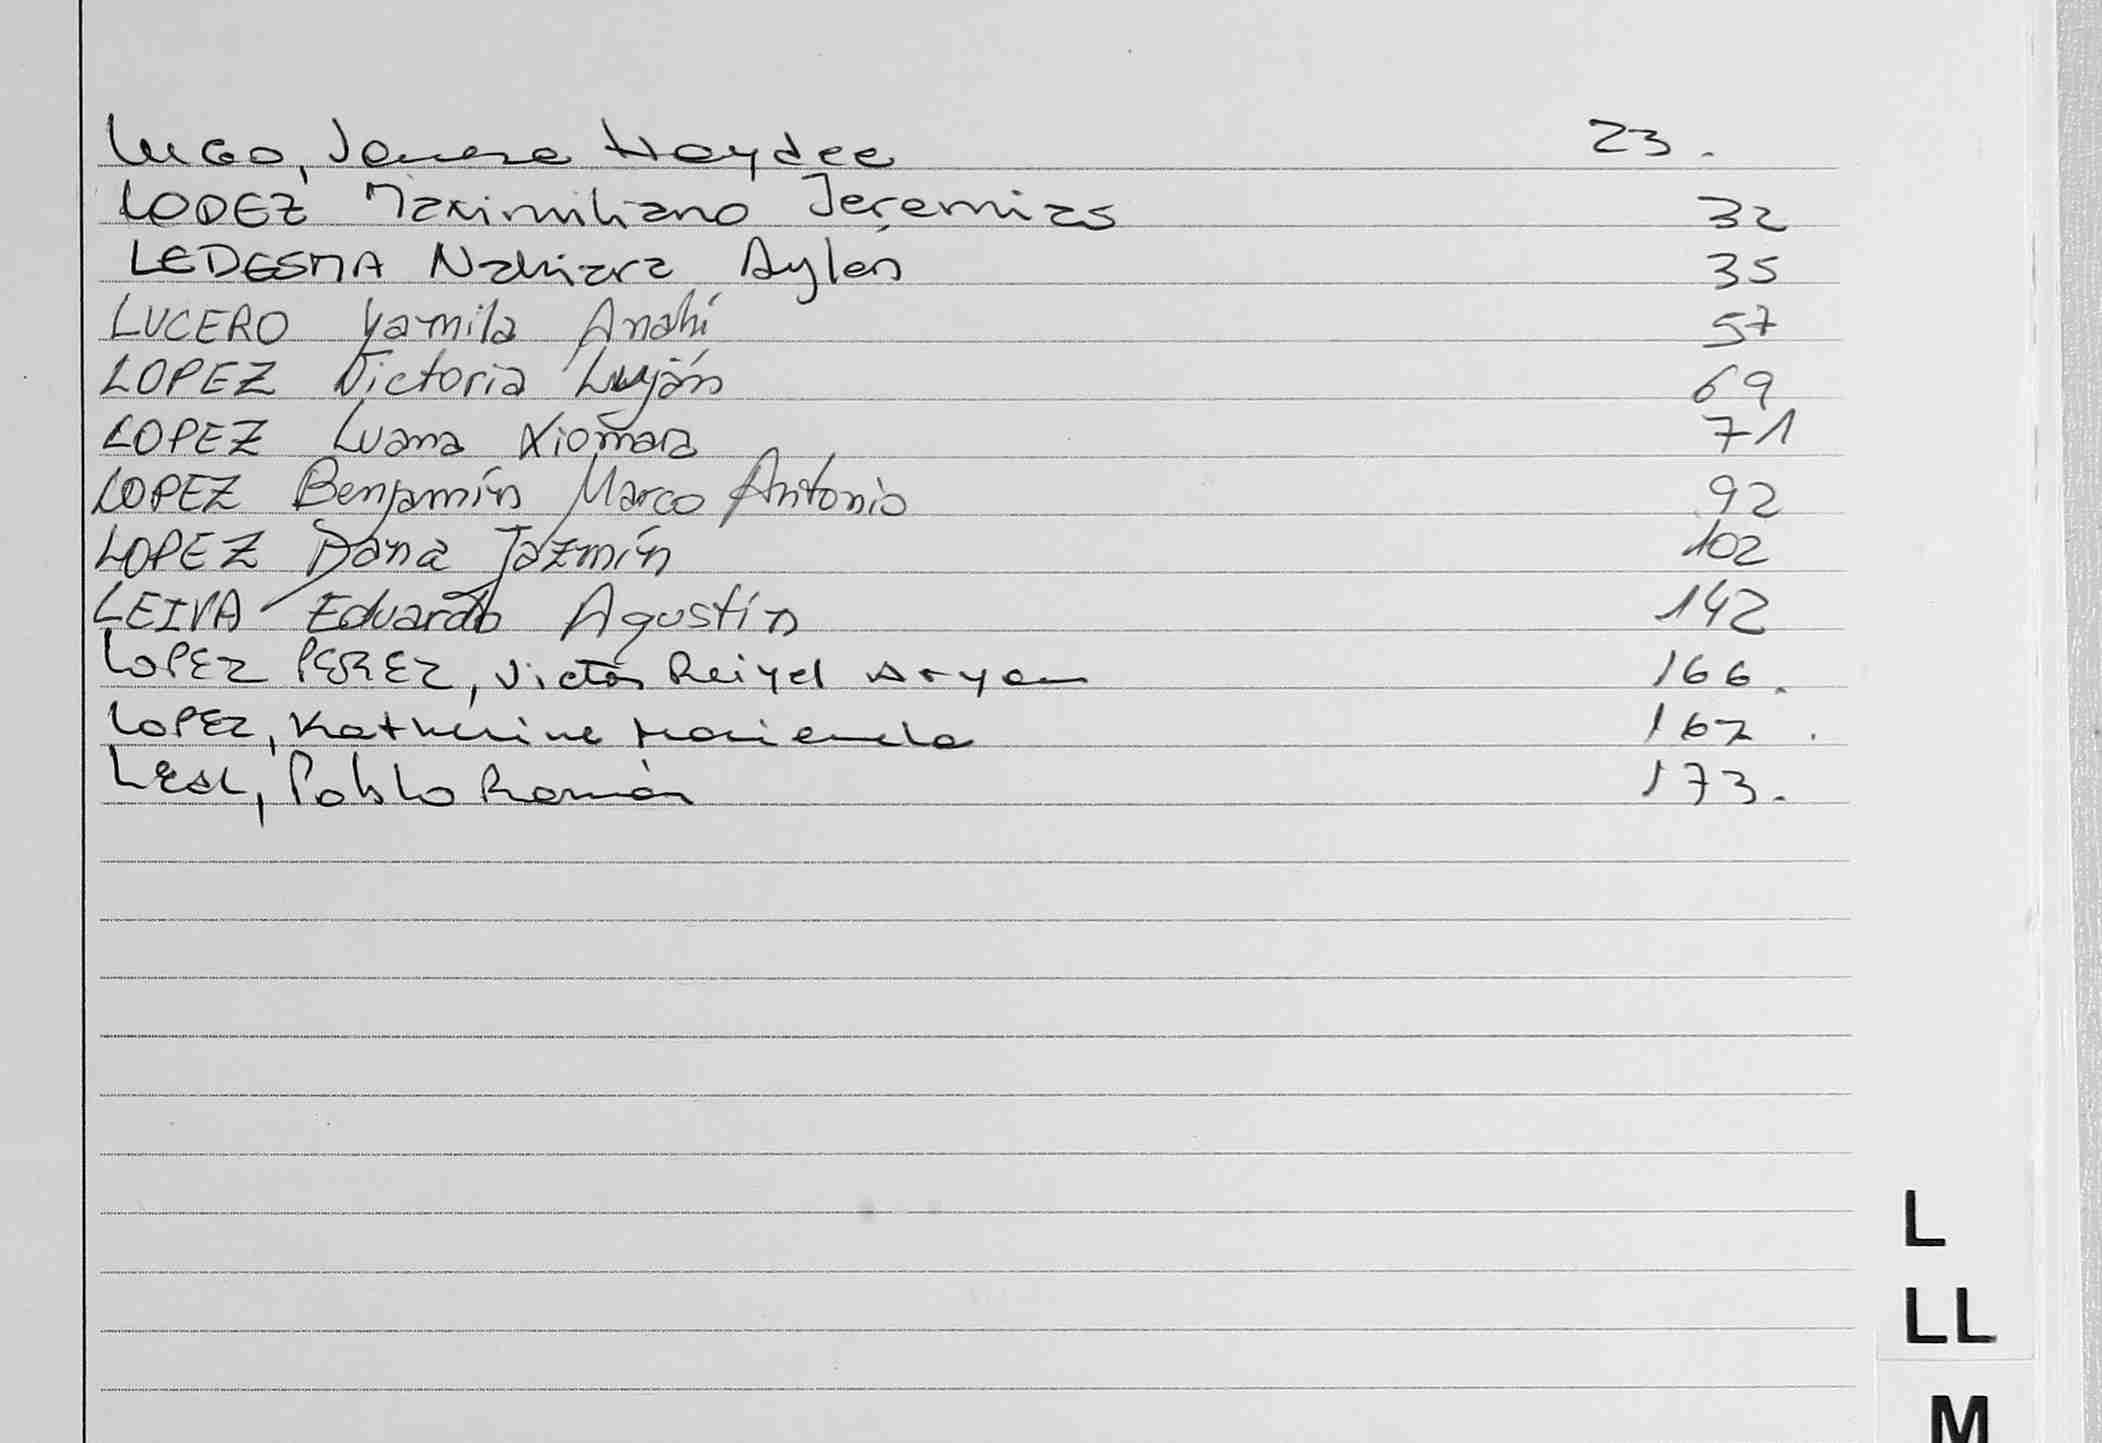 LUGO, Haydee 23.
LOPEZ Maximiliano Jeremias 32
LEDESMA Nahiara Aylén 35
LUCERO Yamila Anahí 57
LOPEZ Victoria Luján 69
LOPEZ Luana Xiomara 71
LOPEZ Benjamín Marco Antonio 92
LOPEZ Dana Jazmín 102
LEIVA Eduardo Agustín 142
LOPEZ PEREZ, Victor Reiyel Aryan 166.
LOPEZ, Katherine 167.
LEAL, Pablo Román 173.
L
LL
M